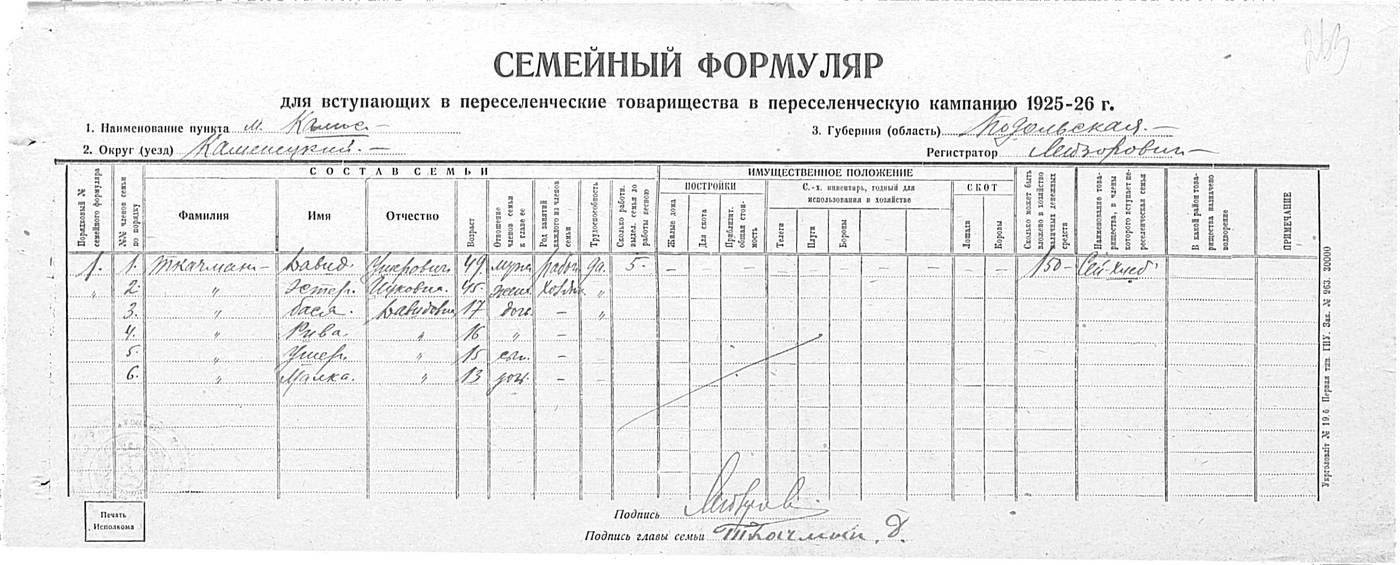 263
СЕМЕЙНЫЙ ФОРМУЛЯР
для вступающих в переселенческие товарищества в переселенческую кампанию 1925-26 г.
1. Наименование пункта м.
3. Губерния (область) Подольская
2. Округ (уезд) Каменецкий
Регистратор
СОСТАВ СЕМЬИ ИМУЩЕСТВЕННОЕ ПОЛОЖЕНИЕ
ПОСТРОЙКИ С.-х. инвентарь, годный для использования в хозяйстве СКОТ
Порядковый № семейного формуляра
№№ членов семьи по порядку
Фамилия
Имя
Отчество
Возраст
Отношение членов семьи к главе ее
Род занятий каждого из членов семьи
Трудоспособность
Сколько работн. выдел. семья до работы весною
Жилые дома
Для скота
Приблизит. общая стоимость
Телеги
Плуги
Бороны
Лошади
Коровы
Сколько может быть вложено в хозяйство наличных денежных средств
Наименование товарищества, в члены которого вступает переселенческая семья
В какой район товарищества назначено водворение
ПРИМЕЧАНИЕ
1. 1. Ткачман Давид 49 да 5 - - - - - - - - 150
„ 2. „ Эстер 45 жена „
3. „ Бася Давидовна 17 доч. - „
4. „ Рива „ 16 „ -
5. „ Ушер „ 15 сын -
6. „ Малка „ 13 доч. - -
Печать Исполкома
Подпись
Подпись главы семьи Ткачман Д.
Укрголовліт № 19.6 Первая тип. ГИУ. Зак. № 963. 30000